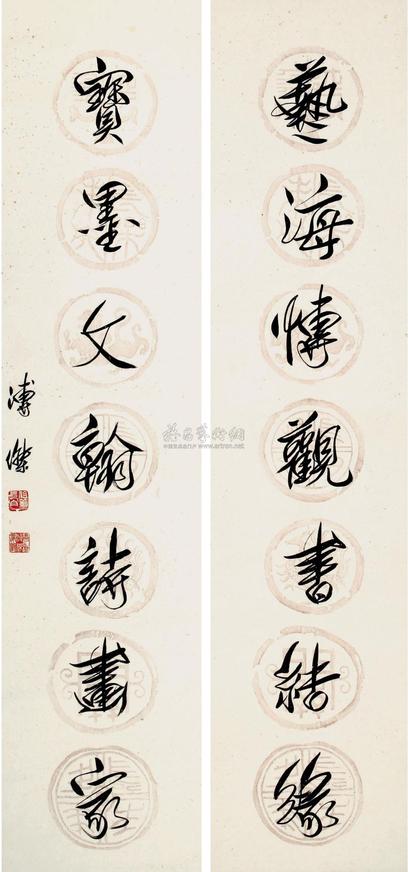 藝海愽觀書結緣
寶墨文翰詩畫家
溥傑
www.artron.net